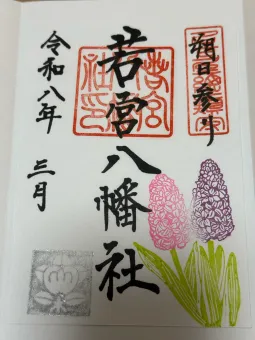 朔日参り
若宮八幡社
令和八年 三月